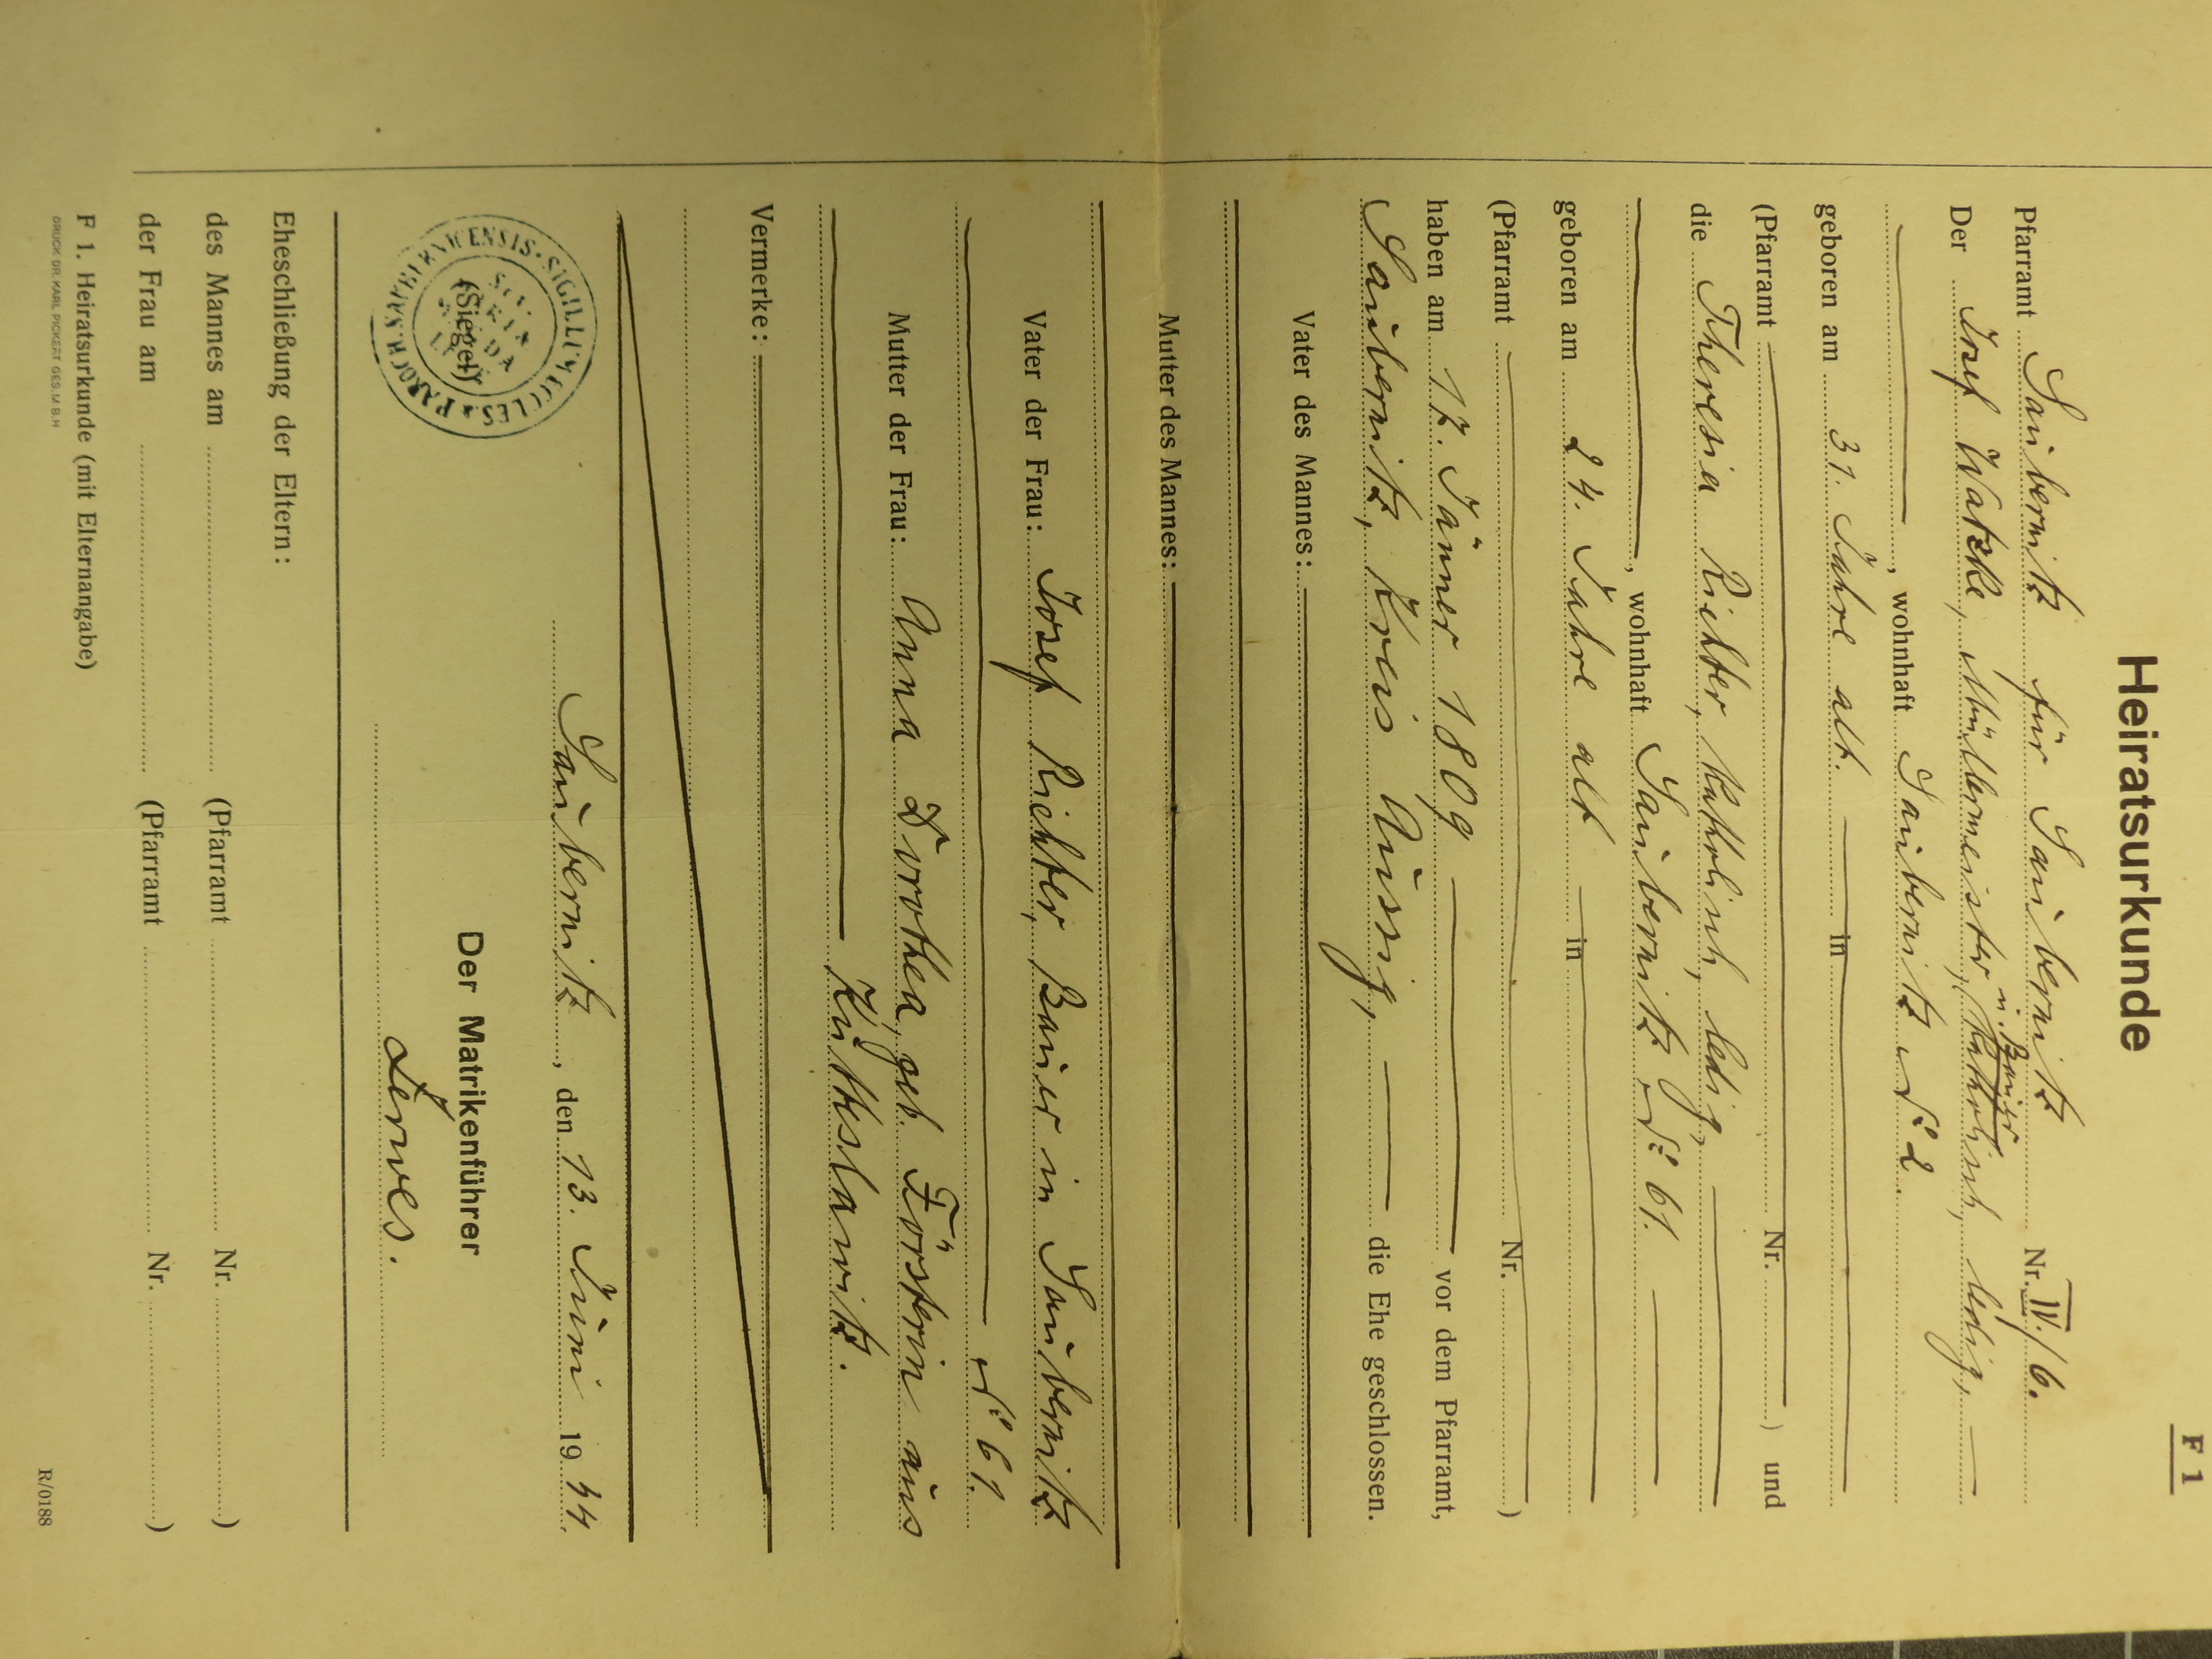 F 1
Heiratsurkunde
Pfarramt Saubernitz für Saubernitz Nr. IV./6.
u. Bauer
Der Josef Watzke, Müllermeister, katholisch, ledig,
, wohnhaft Saubernitz No 2.
geboren am 31. Jahre alt. in
(Pfarramt Nr. ) und
die Theresia Richter, katholisch, ledig,
, wohnhaft Saubernitz No 61.
geboren am 24. Jahre alt in
(Pfarramt Nr. )
haben am 17. Jänner 1809 vor dem Pfarramt,
Saubernitz, Kreis Aussig, die Ehe geschlossen.
Vater des Mannes:
Mutter des Mannes:
Vater der Frau: Josef Richter, Bauer in Saubernitz
No 61.
Mutter der Frau: Anna Dorothea, geb. Försterin aus
Kutteslawitz.
Vermerke:
Saubernitz, den 13. Juni 1944.
SIGILLUM ECCLES. PAROCH.
(Siegel)
Der Matrikenführer
Zerwes.
Eheschließung der Eltern:
des Mannes am (Pfarramt Nr. )
der Frau am (Pfarramt Nr. )
F 1. Heiratsurkunde (mit Elternangabe)
DRUCK DR. KARL PICKERT GES.M.B.H
R/0188